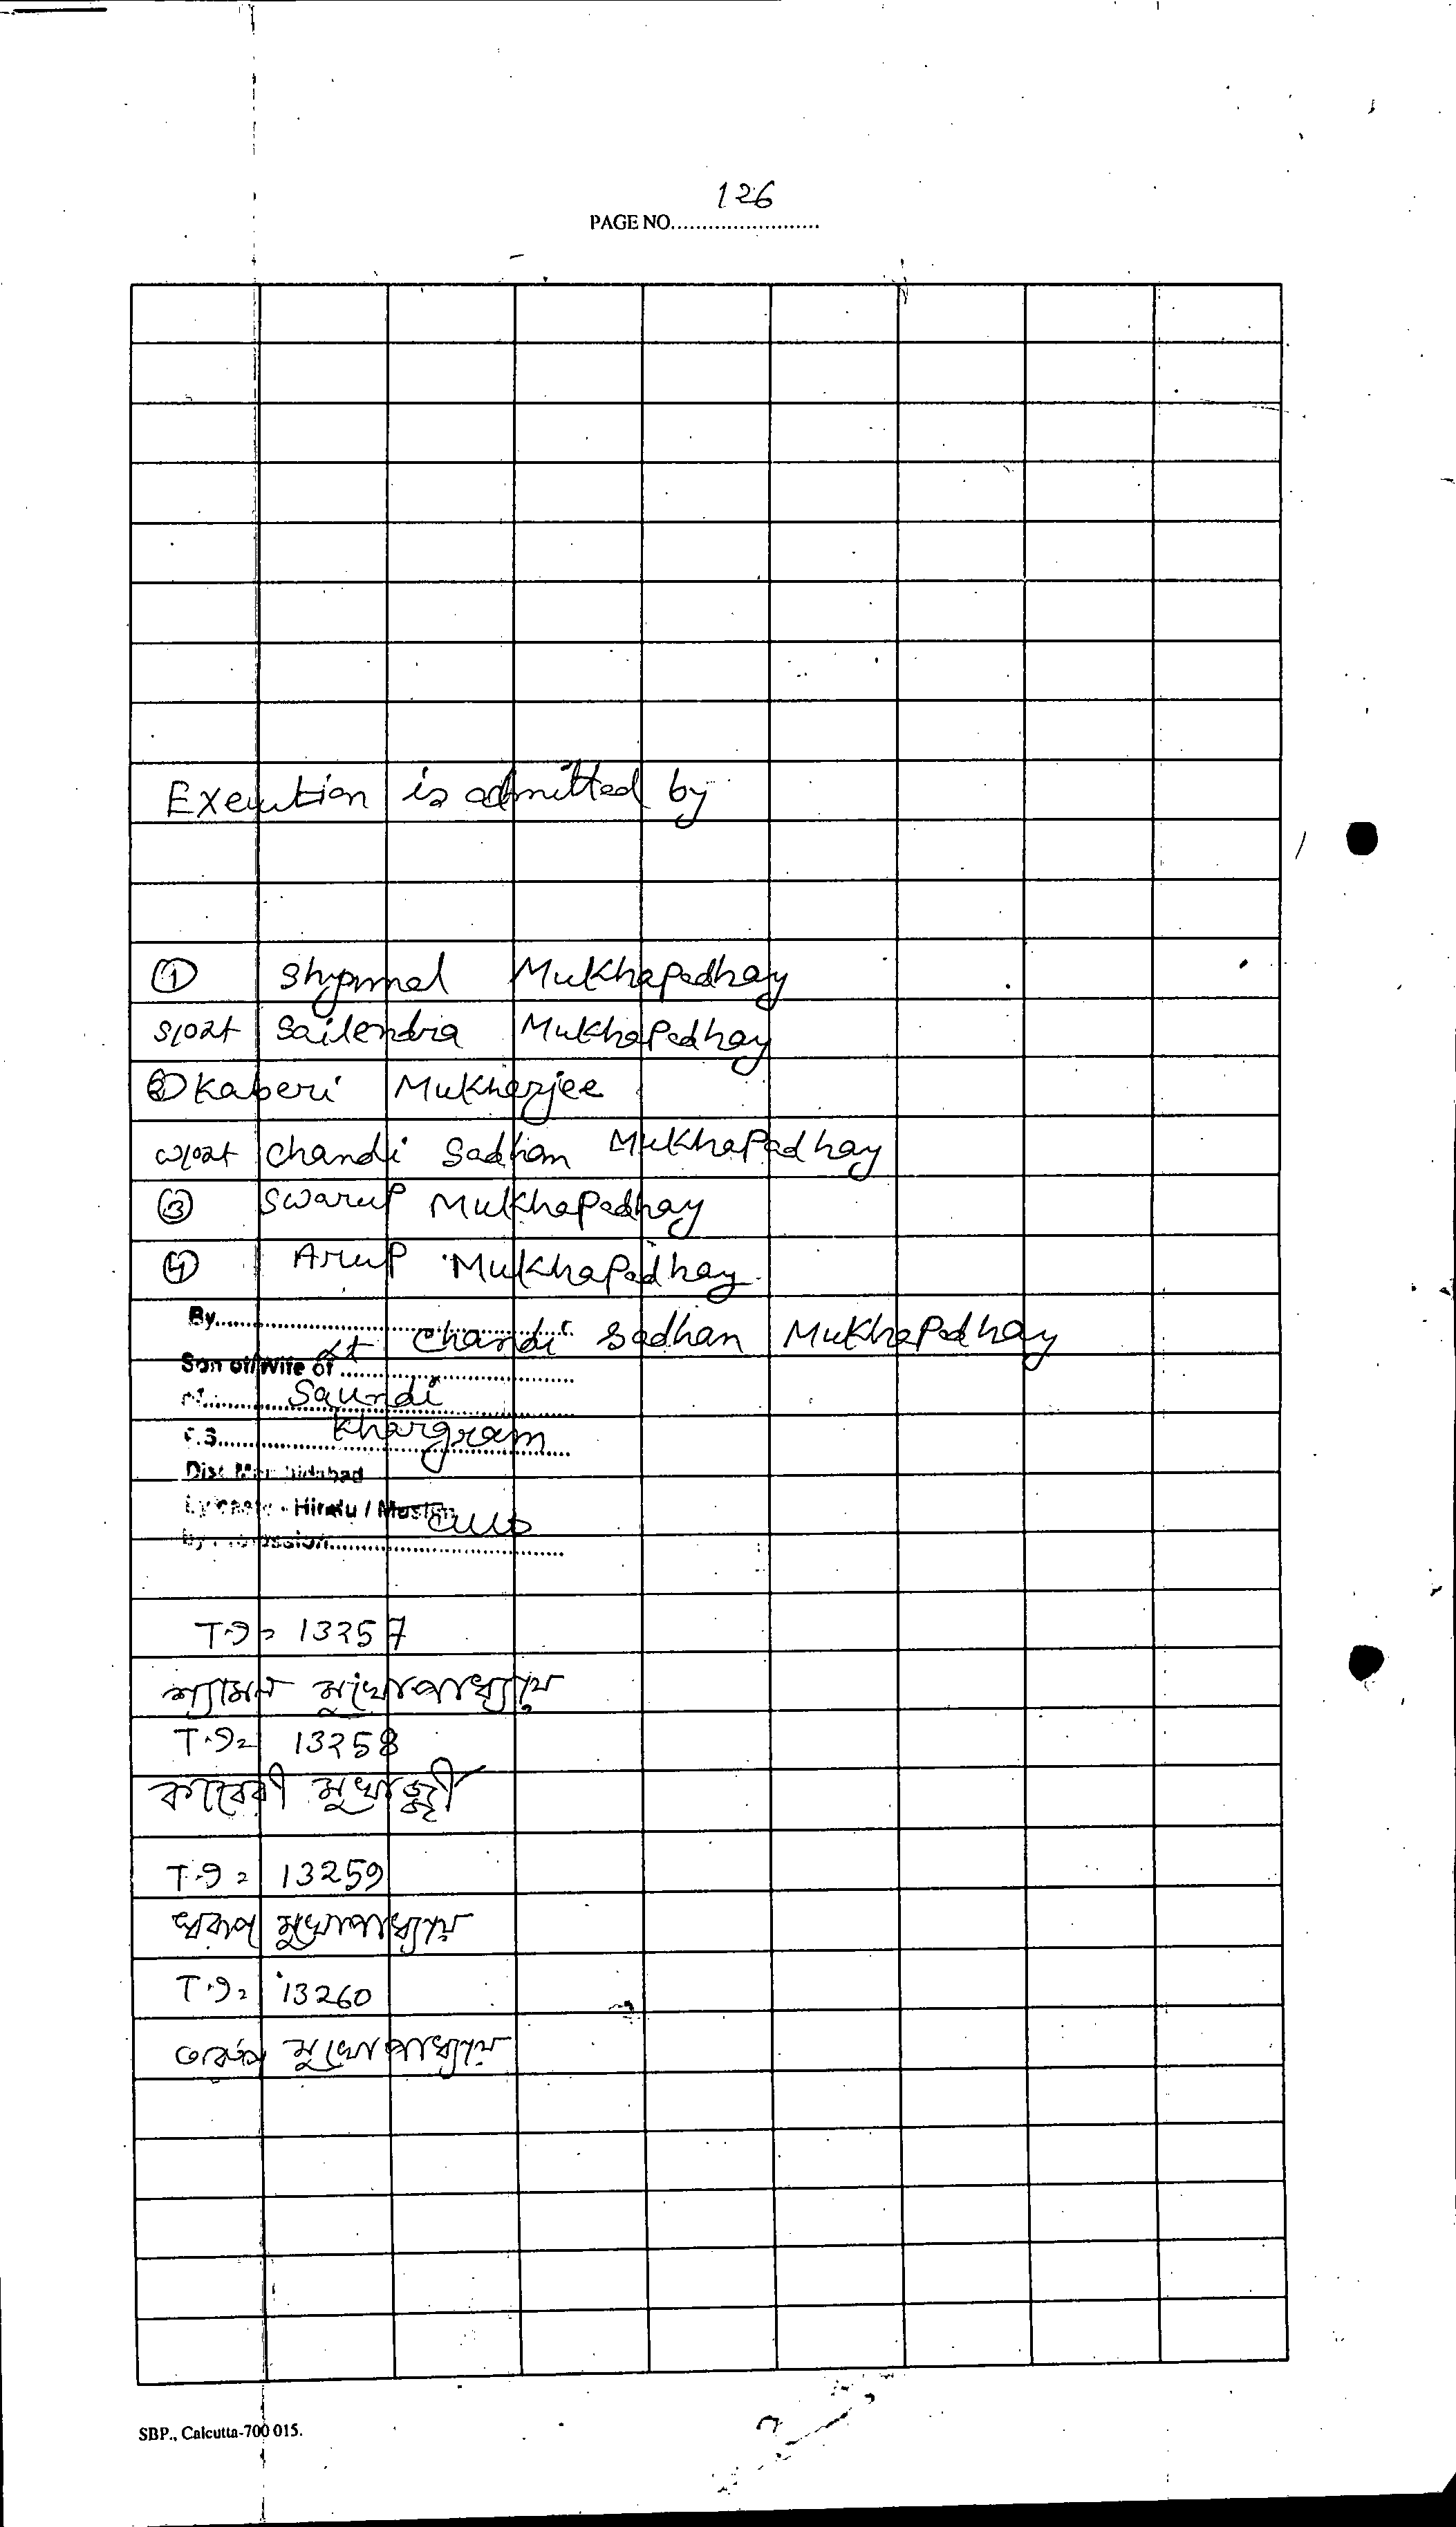 126
PAGE NO........................
Execution is admitted by
① Shyamal Mukhapadhay
S/o Lt Sailendra Mukhapadhay
② Kaberi Mukherjee
W/o Lt Chandi Sadhan Mukhapadhay
③ Swarup Mukhapadhay
④ Arup Mukhapadhay
By........................
Son of/Wife of Lt Chandi Sadhan Mukhapadhay
Saundi
P.S. Khargram
Dist. Murshidabad
By caste - Hindu / Muslim
By Profession
13257
শ্যামল মুখোপাধ্যায়
13258
কাবেরী মুখার্জ্জী
13259
স্বরূপ মুখোপাধ্যায়
13260
অরূপ মুখোপাধ্যায়
SBP., Calcutta-700 015.